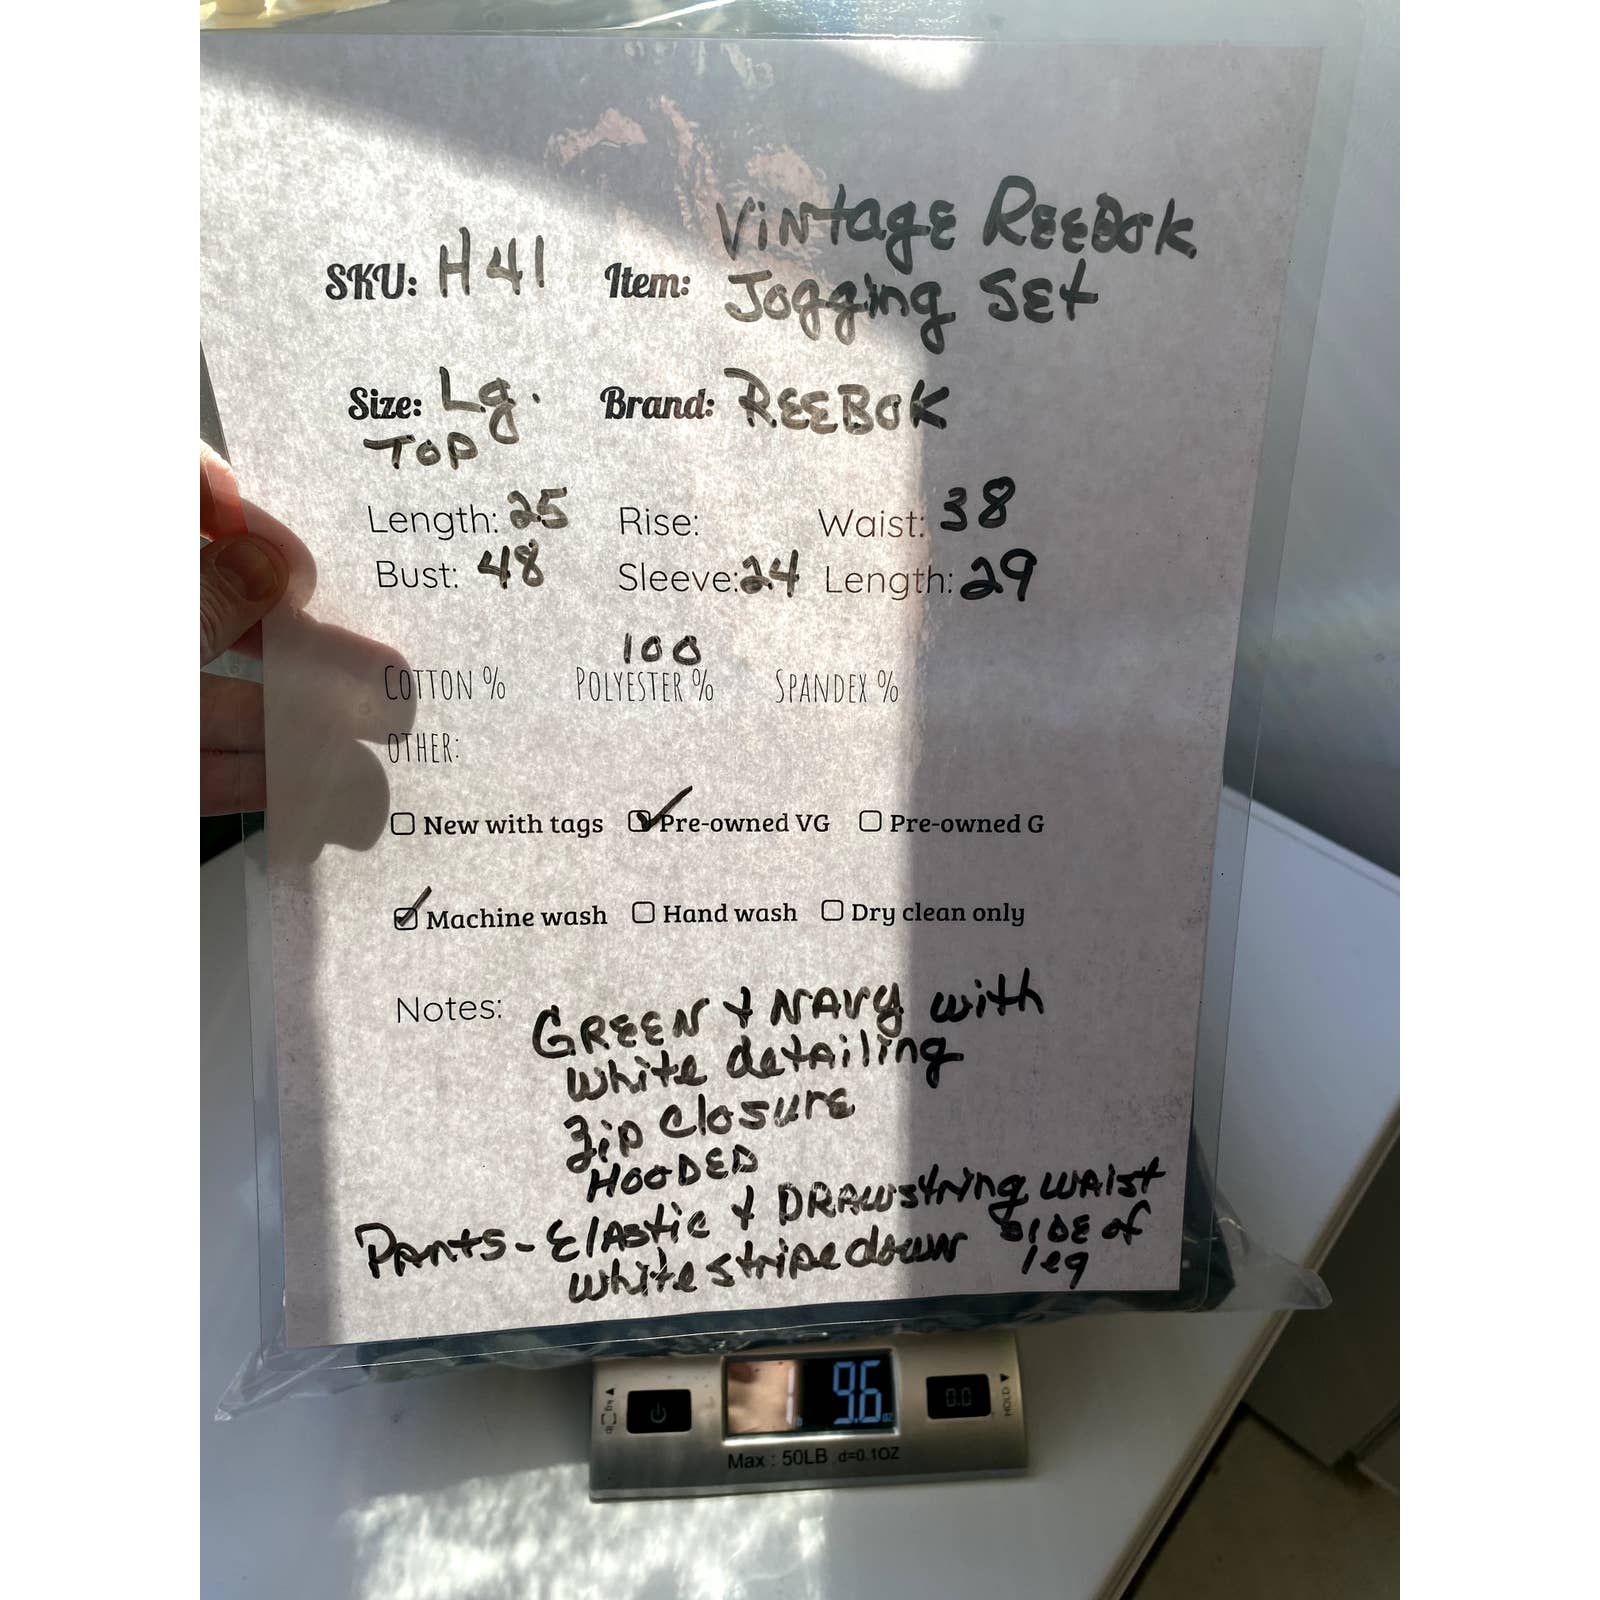 SKU: H41 Item: Vintage Reebok
Jogging Set
Size: Lg. Brand: REEBOK
TOP
Length: 25 Rise: Waist: 38
Bust: 48 Sleeve: 24 Length: 29
100
COTTON % POLYESTER % SPANDEX %
OTHER:
New with tags Pre-owned VG Pre-owned G
Machine wash Hand wash Dry clean only
Notes: GREEN + NAVY with
white detailing
Zip closure
HOODED
Pants - Elastic + DRAWstring waist
white stripe down SIDE of
leg
1 lb 9.6 oz
0.0
HOLD
kg lb
Max : 50LB d=0.1OZ